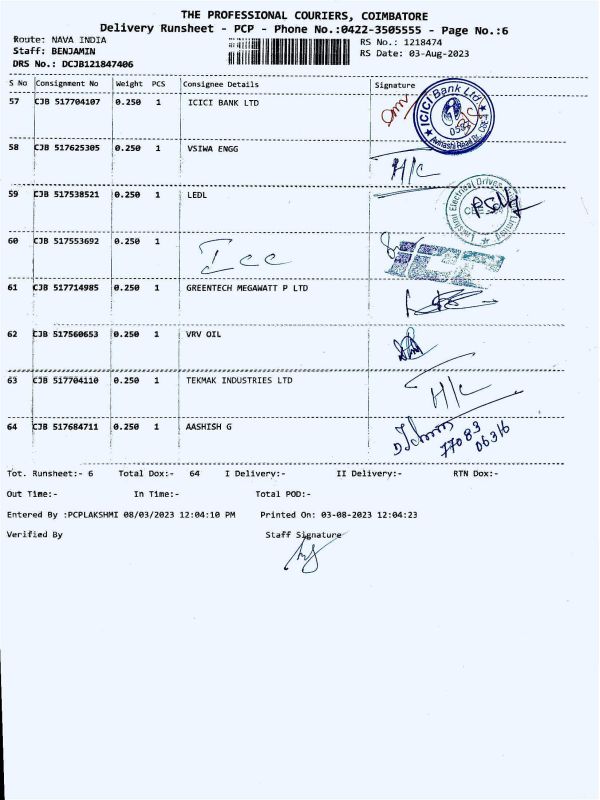 THE PROFESSIONAL COURIERS, COIMBATORE
Delivery Runsheet - PCP - Phone No.:0422-3505555 - Page No.:6
Route: NAVA INDIA
RS No.: 1218474
Staff: BENJAMIN
RS Date: 03-Aug-2023
DRS No.: DCJB121847406
S No Consignment No Weight PCS Consignee Details Signature
57 CJB 517704107 0.250 1 ICICI BANK LTD
ICICI Bank Ltd.
58 CJB 517625305 0.250 1 VSIWA ENGG H/c
59 CJB 517538521 0.250 1 LEDL
Lakshmi Electrical Drives Limited
60 CJB 517553692 0.250 1 Icc
61 CJB 517714985 0.250 1 GREENTECH MEGAWATT P LTD
62 CJB 517560653 0.250 1 VRV OIL
63 CJB 517704110 0.250 1 TEKMAK INDUSTRIES LTD H/c
64 CJB 517684711 0.250 1 AASHISH G
77083
06316
Tot. Runsheet:- 6 Total Dox:- 64 I Delivery:- II Delivery:- RTN Dox:-
Out Time:- In Time:- Total POD:-
Entered By :PCPLAKSHMI 08/03/2023 12:04:10 PM Printed On: 03-08-2023 12:04:23
Verified By Staff Signature